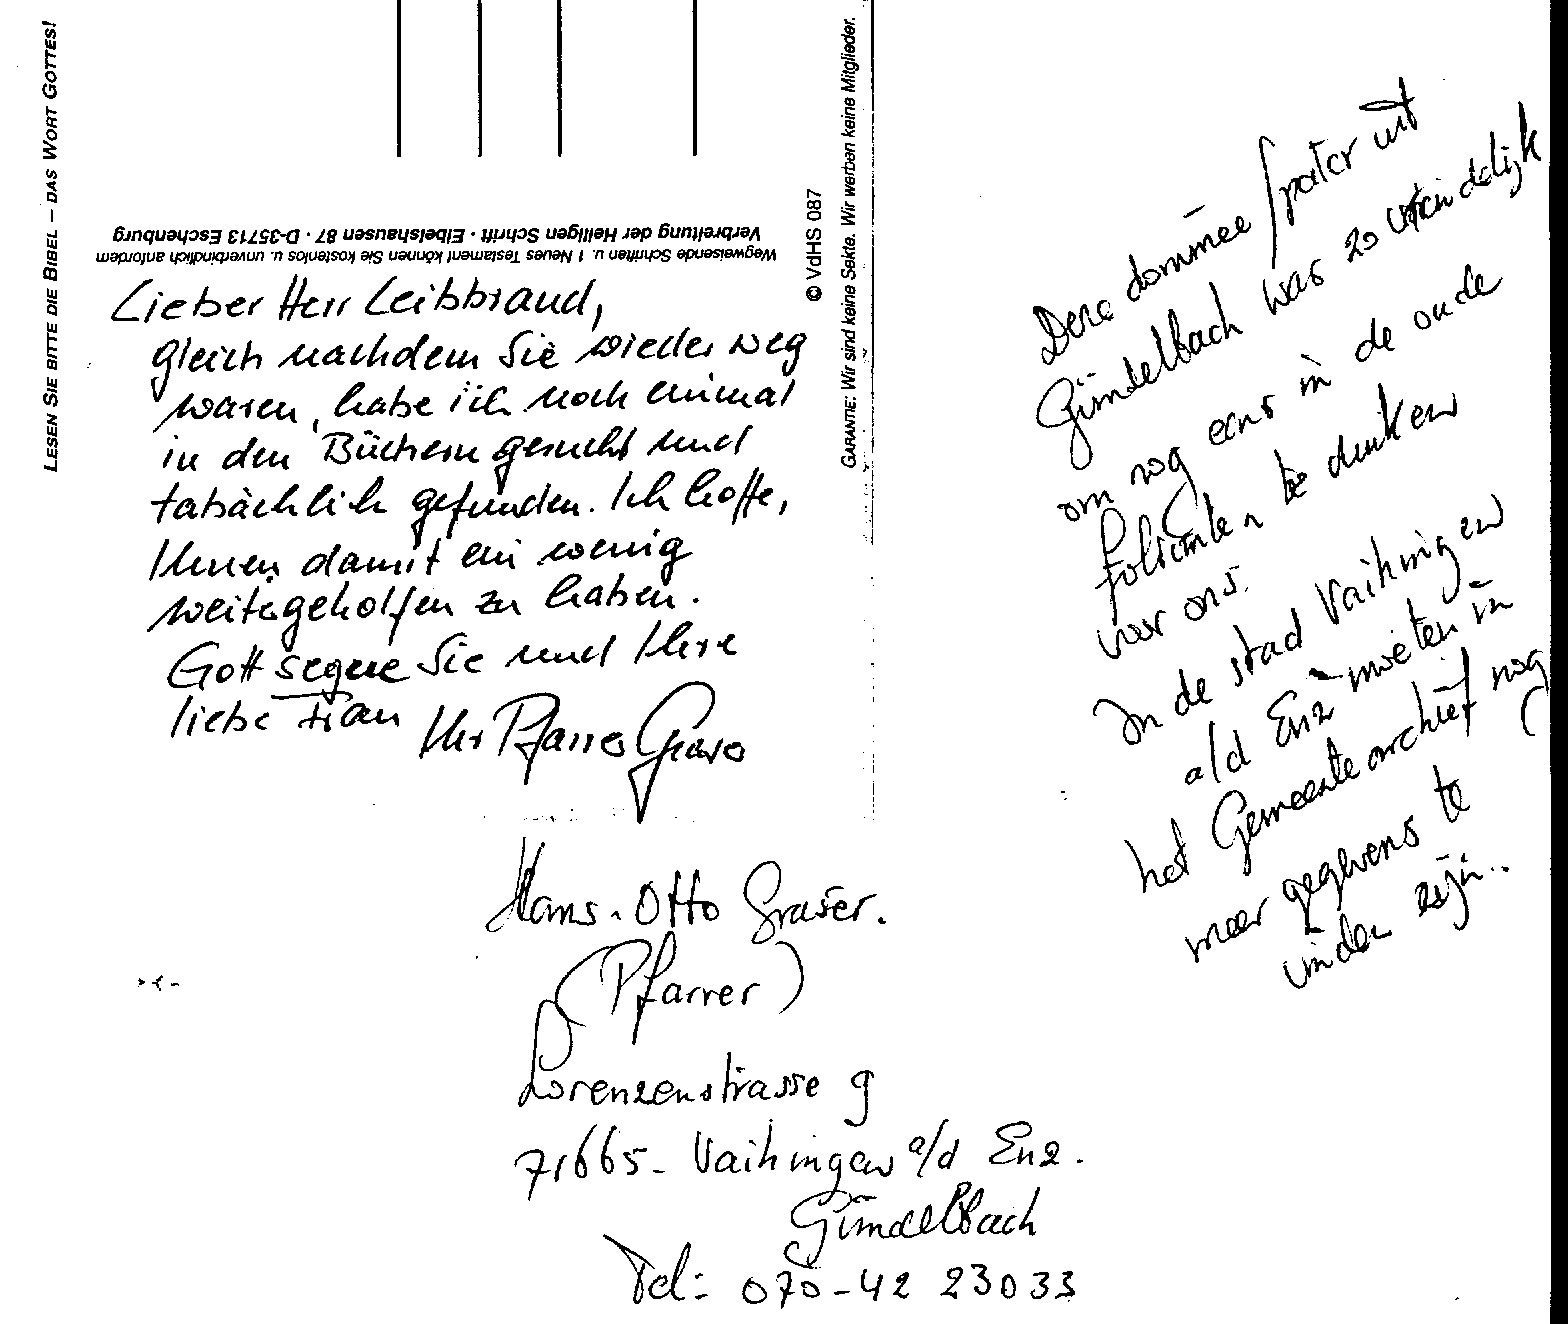 LESEN SIE BITTE DIE BIBEL – DAS WORT GOTTES!
Wegweisende Schriften u. 1 Neues Testament können Sie kostenlos u. unverbindlich anfordern
Verbreitung der Heiligen Schrift · Eibelshausen 87 · D-35713 Eschenburg
© VdHS 087
GARANTIE: Wir sind keine Sekte. Wir werben keine Mitglieder.
Lieber Herr Leibbrand,
gleich nachdem Sie wieder weg
waren, habe ich noch einmal
in den Büchern gesucht und
tatsächlich gefunden. Ich hoffe,
Ihnen damit ein wenig
weitergeholfen zu haben.
Gott segne Sie und Ihre
liebe Frau Ihr Pfarrer Graser
Hans-Otto Graser.
(Pfarrer)
Lorenzenstrasse 9
71665- Vaihingen a/d Enz.
Gündelbach
Tel: 070-42 23033
Deze dominee / pater uit
Gündelbach was zo vriendelijk
om nog eens in de oude
folianten te duiken
voor ons.
In de stad Vaihingen
a/d Enz moeten in
het Gemeentearchief nog
meer gegevens te
vinden zijn..